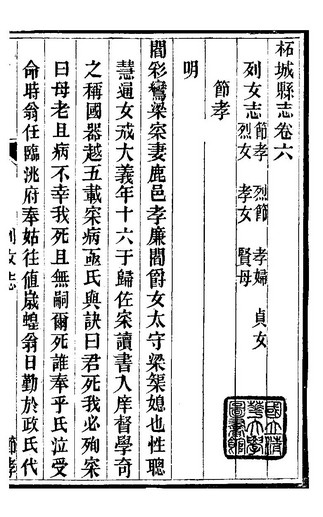 柘城縣志卷六
列女志 節孝 烈節 孝婦 貞女
烈女 孝女 賢母
節孝
明
閻彩鸞梁寀妻鹿邑孝廉閻爵女太守梁榘媳也性聰
慧通女戒大義年十六于歸佐寀讀書入庠督學奇
之稱國器越五載寀病亟氏與訣曰君死我必殉寀
曰母老且病不幸我死且無嗣爾死誰奉乎氏泣受
命時翁任臨洮府奉姑往值歲蝗翁日勤於政氏代
列女志
節孝
國立清
華大學
圖書館